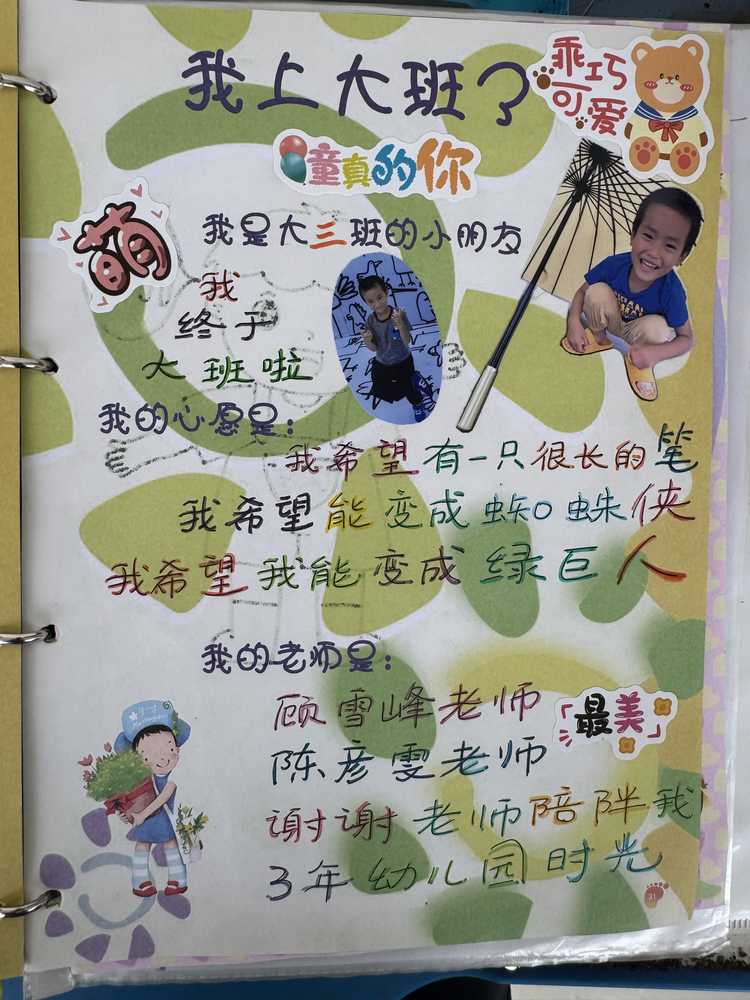 我上大班了
乖巧
可爱
童真的你
萌
我是大三班的小朋友
我
终于
大班啦
我的心愿是：
我希望有一只很长的笔
我希望能变成蜘蛛侠
我希望我能变成绿巨人
我的老师是：
顾雪峰老师
最美
陈彦雯老师
谢谢老师陪伴我
3年幼儿园时光
31